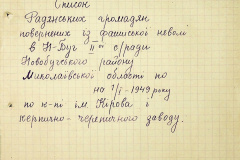 Список
Радянських громадян
повернених із фашиської неволі
в Н-Буг II ої с/ради
Новобугського району
Миколаївської області по
на 1/I-1949 року
по к-пі ім Кірова і
керпично-черепичного заводу.